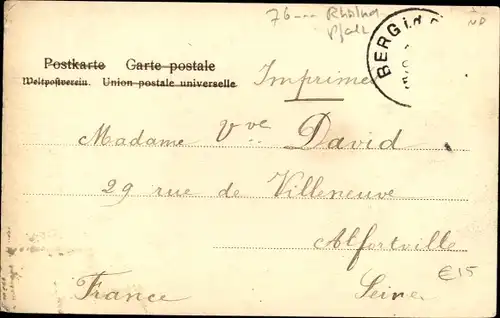 76 --- Rheinl
Pfalz
ND
BERGI
Postkarte Carte postale
Weltpostverein. Union postale universelle
Imprimé
Madame Vve David
29 rue de Villeneuve
Alfortville
€15
France Seine